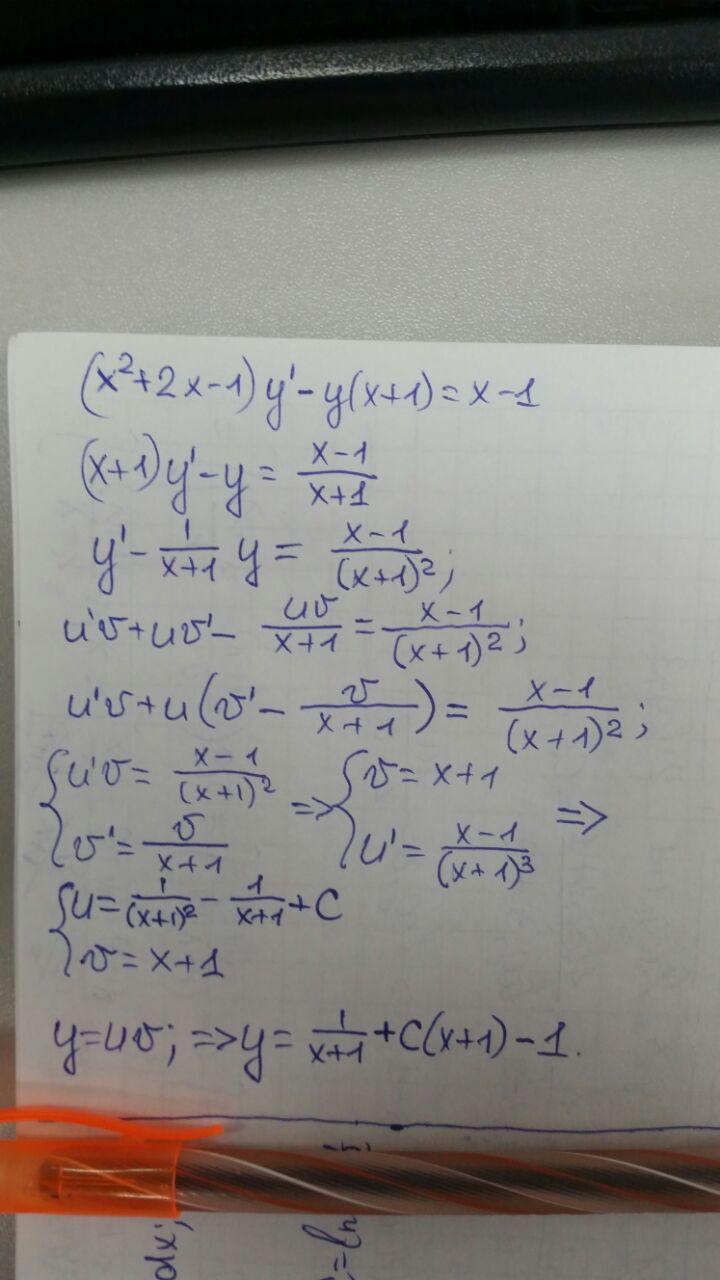 (x²+2x-1)y'-y(x+1)=x-1
(x+1)y'-y=(x-1)/(x+1)
y'-1/(x+1) y=(x-1)/(x+1)²;
u'v+uv'-uv/(x+1)=(x-1)/(x+1)²;
u'v+u(v'-v/(x+1))=(x-1)/(x+1)²;
{u'v=(x-1)/(x+1)² => {v=x+1 =>
{v'=v/(x+1) {u'=(x-1)/(x+1)³
{u=1/(x+1)²-1/(x+1)+C
{v=x+1
y=uv; =>y=1/(x+1)+C(x+1)-1.
dx;